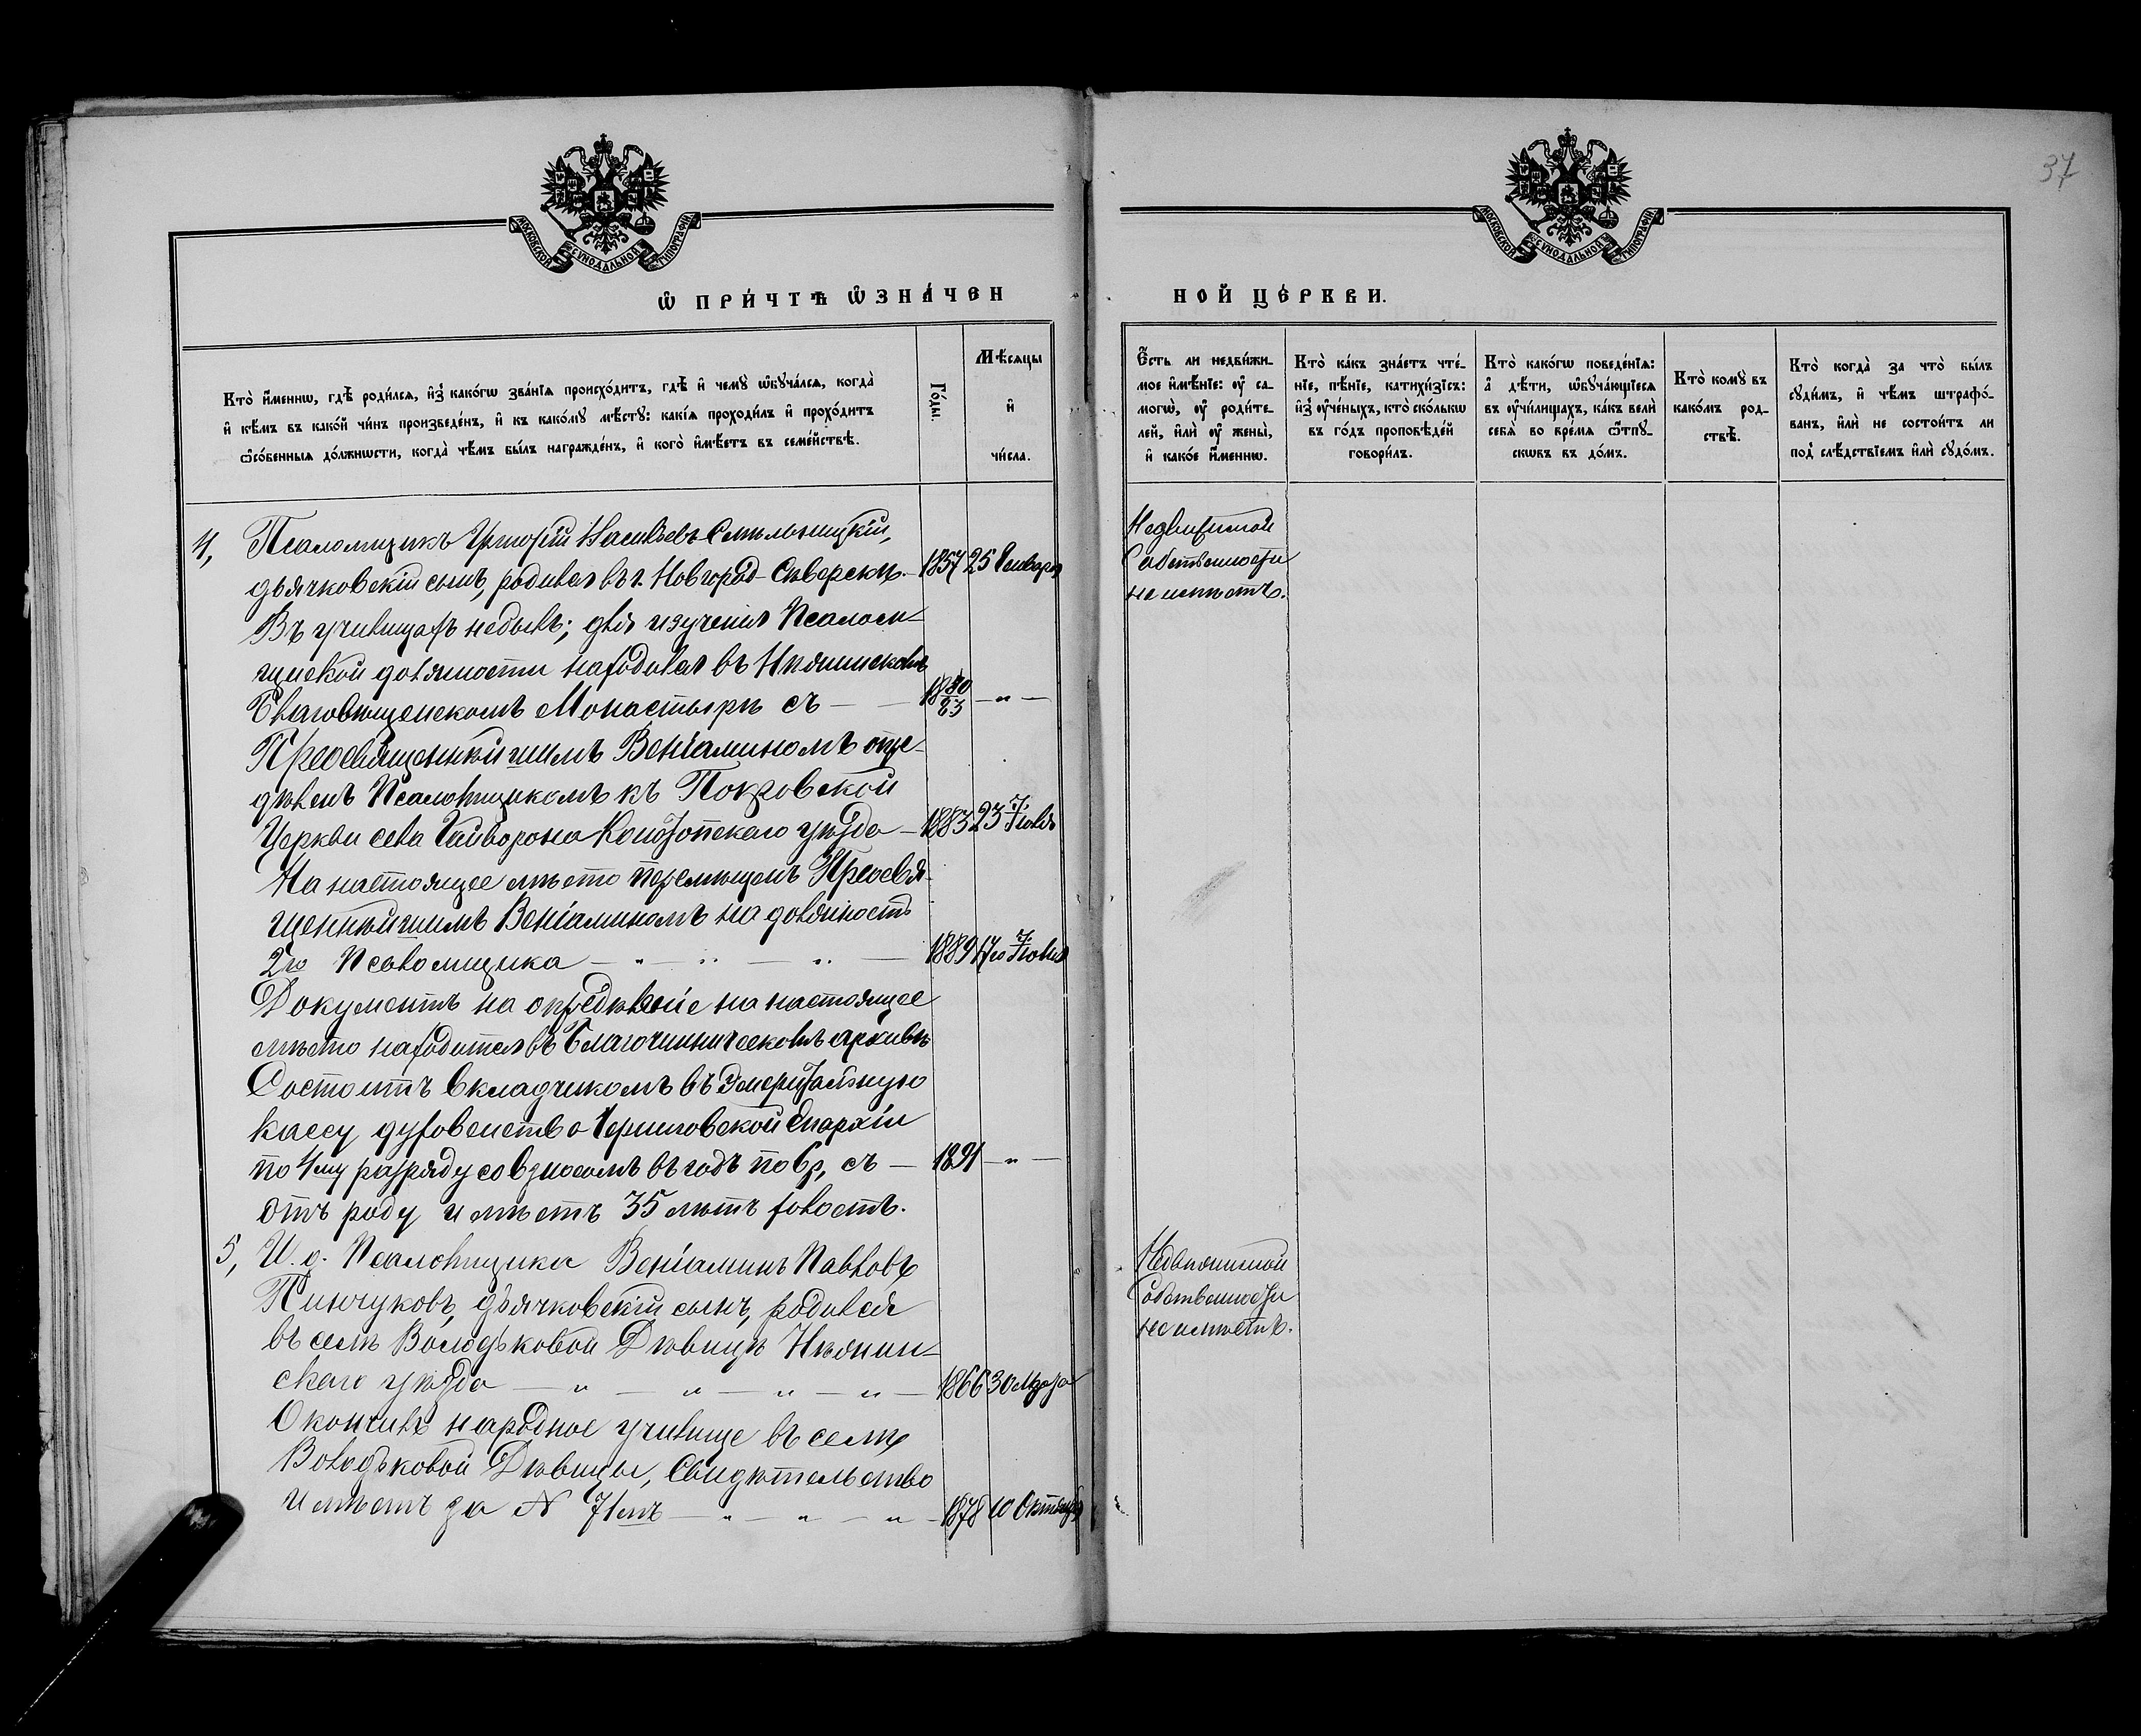 37
МОСКОВСКОЙ СѴНОДАЛЬНОЙ ТИПОГРАФІИ
МОСКОВСКОЙ СѴНОДАЛЬНОЙ ТИПОГРАФІИ
Ѽ ПРИ́ЧТѢ Ѡ҆ЗНА́ЧЕН
НОЙ ЦЕ́РКВИ.
Кто̀ и҆́меннѡ, гдѣ̀ роди́лсѧ, и҆з̾ како́гѡ зва́нїѧ происхо́дитъ, гдѣ̀ и҆ чемꙋ̀ ѡ҆бꙋча́лсѧ, когда̀
и҆ кѣ́мъ въ како́й чи́нъ произведе́нъ, и҆ къ како́мꙋ мѣ́стꙋ: какі̑ѧ проходи́лъ и҆ прохо́дитъ
ѻ҆со́бенныѧ до́лжнѡсти, когда̀ чѣ́мъ бы́лъ награжде́нъ, и҆ кого̀ и҆мѣ́етъ въ семе́йствѣ.
Го́ды.
Мѣ́сѧцы
и҆
чи́сла.
Е҆́сть ли недви́жи-
мое и҆мѣ́нїе: ᲂу҆ са-
могѡ̀, ᲂу҆ роди́те-
лей, и҆лѝ ᲂу҆ жены̀,
и҆ како́е и҆́меннѡ.
Кто̀ ка́къ зна́етъ чте́-
нїе, пѣ́нїе, катихи́зїсъ:
и҆з̾ ᲂу҆че́ныхъ, кто̀ ско́лькѡ
въ го́дъ проповѣ́дей
говори́лъ.
Кто̀ како́гѡ поведе́нїѧ:
а҆ дѣ́ти, ѡ҆бꙋча́ющїесѧ
въ ᲂу҆чи́лищахъ, ка́къ велѝ
себѧ̀ во вре́мѧ ѿпꙋ-
скѡвъ въ до́мъ.
Кто̀ комꙋ̀ въ
како́мъ род-
ствѣ̀.
Кто̀ когда̀ за что̀ бы́лъ
сꙋди́мъ, и҆ чѣ́мъ штрафо́-
ванъ, и҆лѝ не состои́тъ ли
под̾ слѣ́дствїемъ и҆лѝ сꙋдо́мъ.
4, Псаломщикъ Григорій Васильевъ Смѣльницкій,
дьячковскій сынъ, родился въ г. Новгород-Сѣверскѣ. 1857 25 Января
Въ училищахъ небылъ; для изученія Псалом-
щиской должности находился въ Нѣжинскомъ
Благовѣщенскомъ Монастырѣ съ — — 18 80/83 — „ —
Преосвященнѣйшимъ Веніаминомъ опре-
дѣленъ Псаломщикомъ къ Покровской
Церкви села Гайворона Конотопскаго уѣзда — 1883 23 Іюля
На настоящее мѣсто перемѣщенъ Преосвя-
щеннѣйшимъ Веніаминомъ на должность
2го Псаломщика — „ — „ — „ — 1889 17го Іюля
Документъ на опредѣленіе на настоящее
мѣсто находится въ Благочинническомъ архивѣ
Состоитъ вкладчикомъ въ Эмеритальную
кассу духовенства Черниговской Епархіи
по 4му разряду со взносомъ въ годъ по 6р, съ — 1891 — „ —
отъ роду имѣетъ 35 лѣтъ холостъ.
5, И. д. Псаломщика Веніаминъ Павловъ
Пинчуковъ, дьячковскій сынъ, родился
въ селѣ Володьковой Дѣвицѣ Нѣжин-
скаго уѣзда — „ — „ — „ — „ — 1866 30 Марта
Окончилъ народное училище въ селѣ
Володьковой Дѣвицы, Свидѣтельство
имѣетъ за N 71мъ — „ — „ — „ — 1878 10 Октября
Недвижимой
Собственности
не имѣетъ.
Недвижимой
Собственности
не имѣетъ.